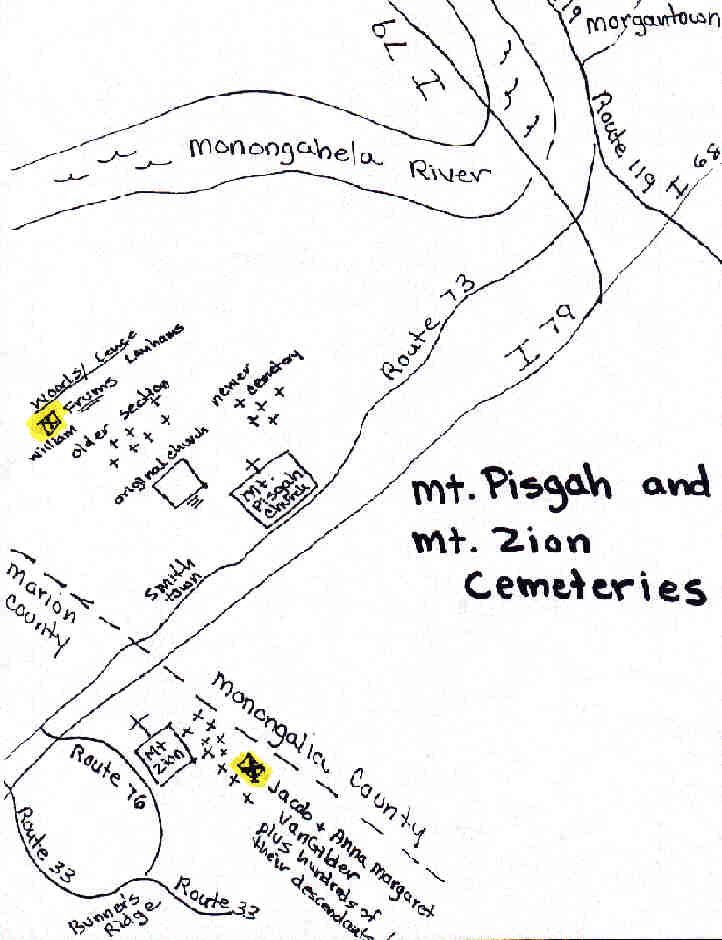 I 79
119
morgantown
Route 119
I 68
Monongahela River
Route 73
I 79
Woods/ Lanse
Frums Lanhams
William
older section
newer
cemetery
original church
Mt.
Pisgah
Church
Mt. Pisgah and
Mt. Zion
Cemeteries
Smith
town
Marion
County
Monongalia County
Mt
Zion
Jacob + Anna Margaret
VanGilder
plus hundreds of
their descendants
Route 76
Route 33
Route 33
Bunner's
Ridge